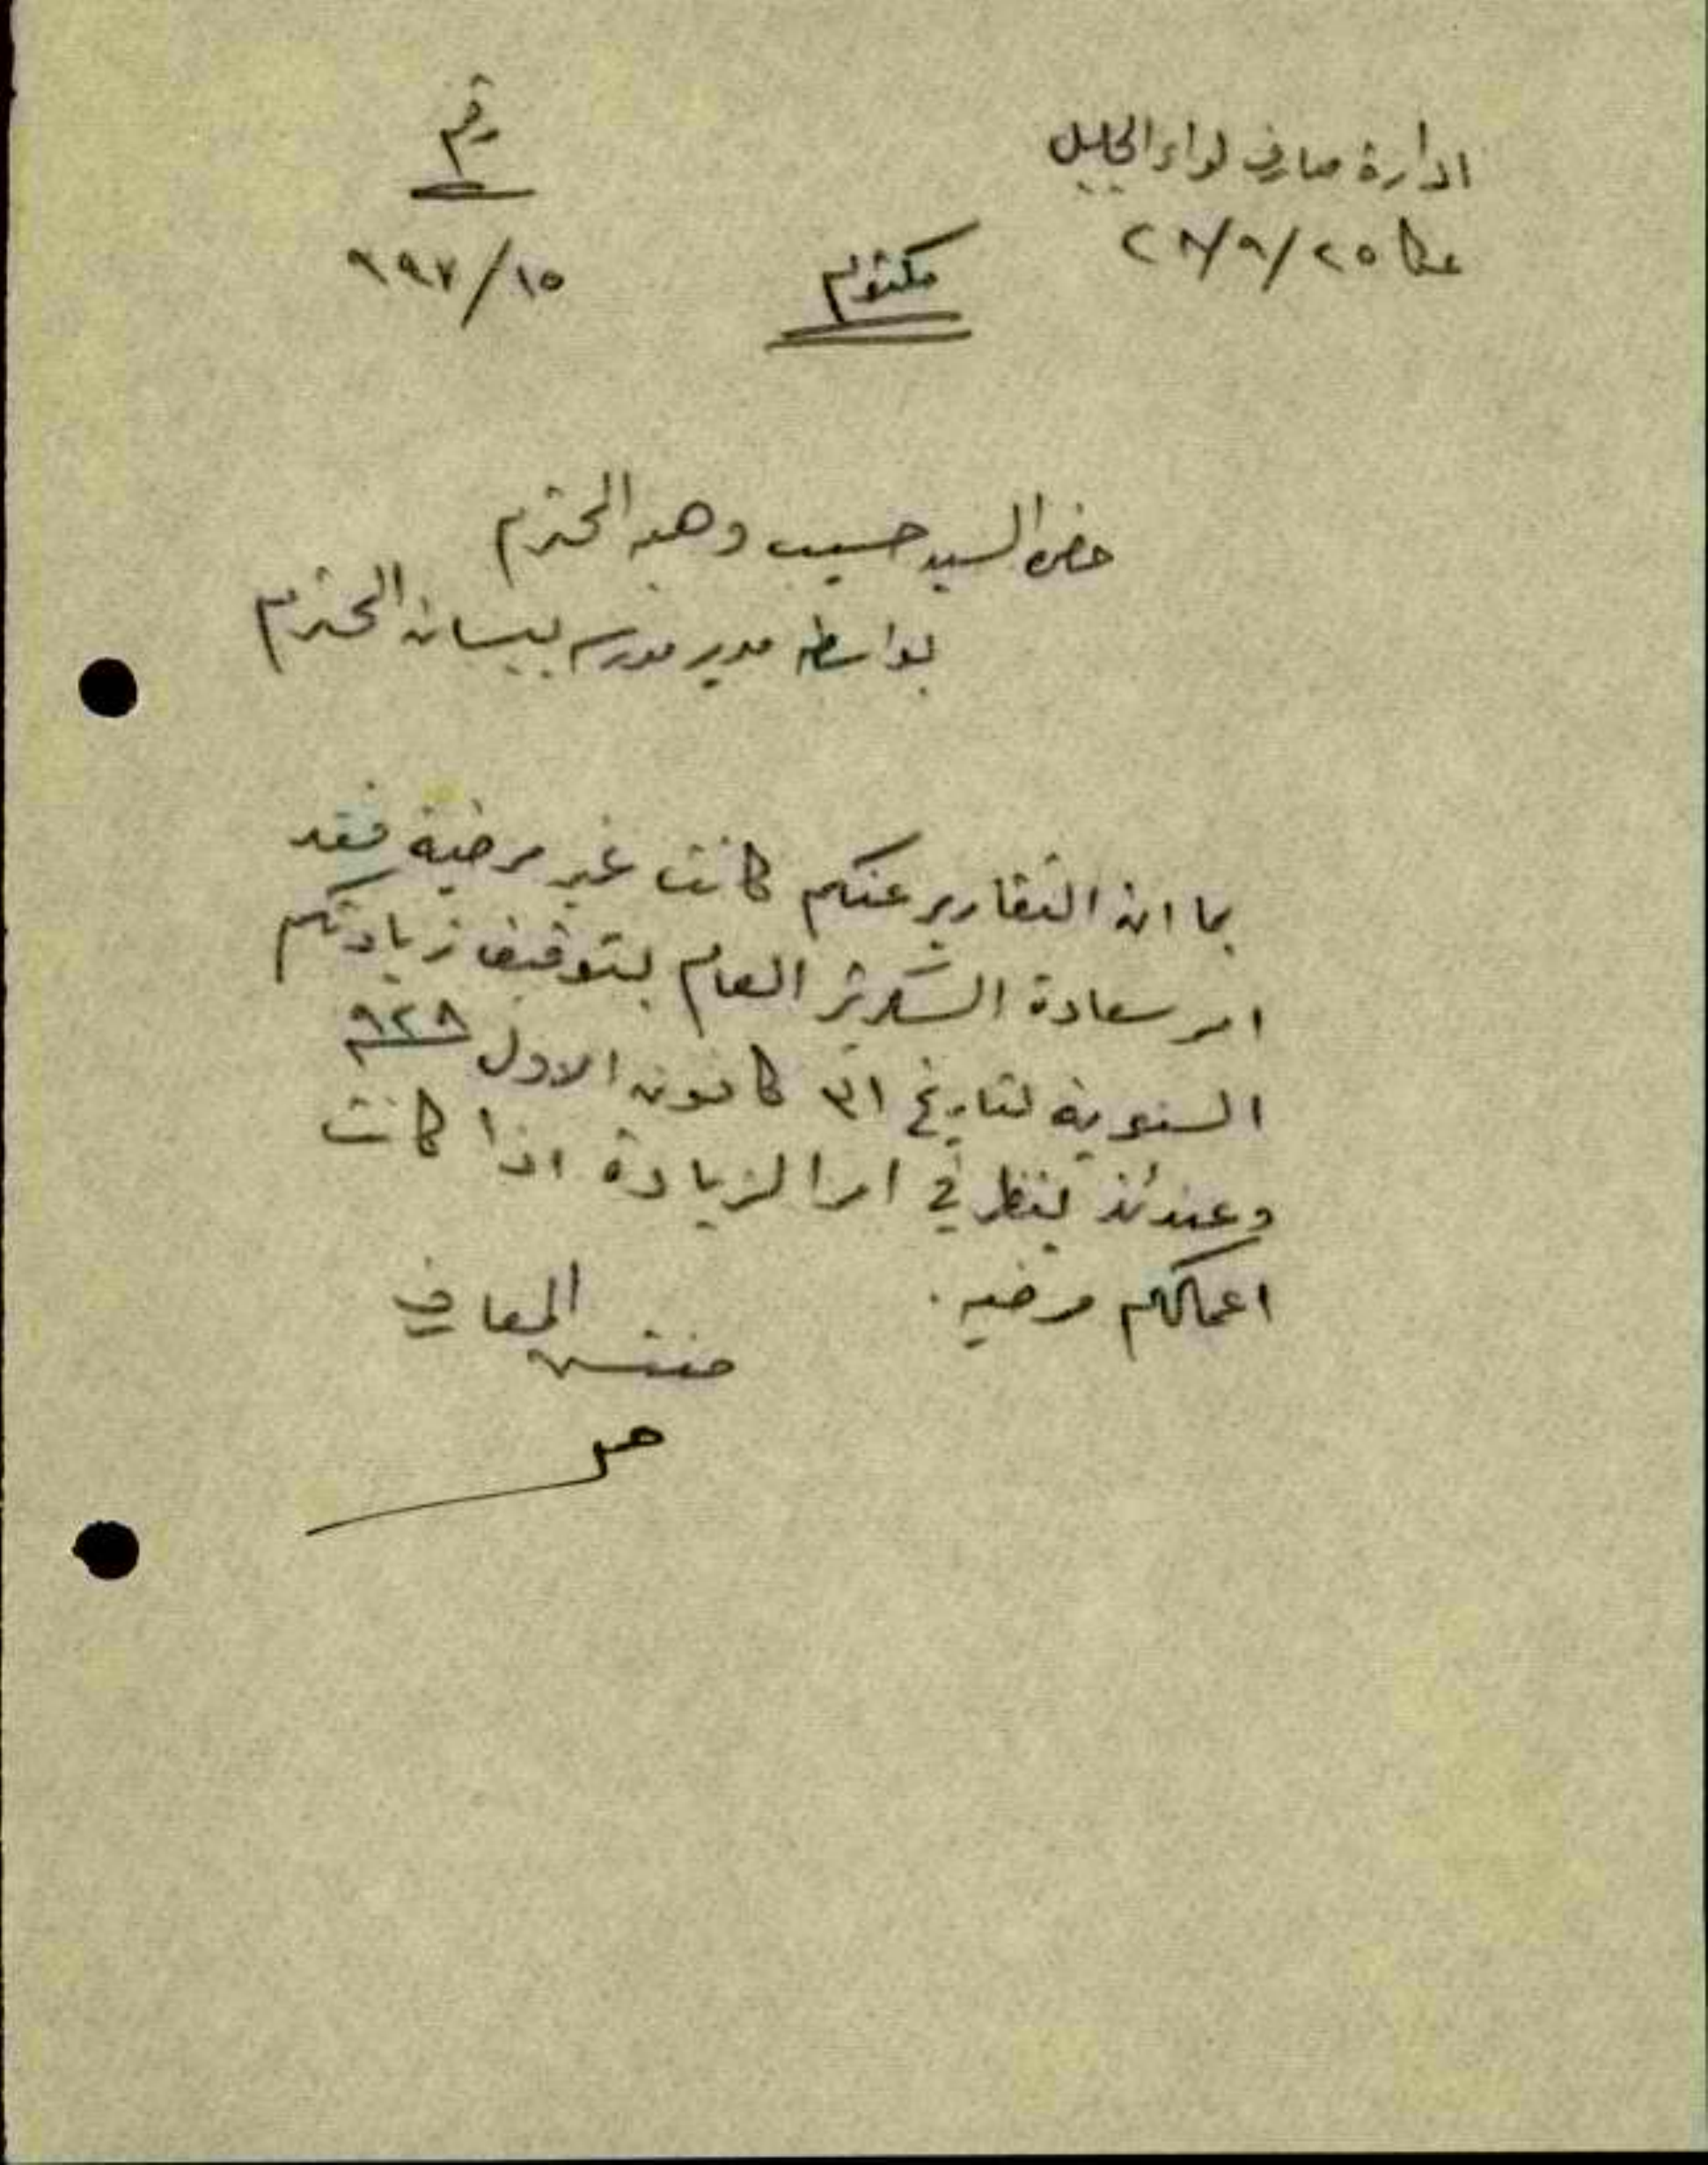 ادارة معارف لواء الجليل
عكا ٢٥/٩/٢٨
رقم
٩٩٧/١٥
مكتوم
حضرة السيد حسيب وهبه المحترم
بواسطة مدير مدرسه بيسان المحترم
بما ان التقارير عنكم كانت غير مرضية فقد
امر سعادة السكرتير العام بتوقيف زيادتكم
السنوية لتاريخ ٣١ كانون الاول ٩٢٨
وعندئذ ينظر في امر الزيادة اذا كانت
اعمالكم مرضيه .
مفتش المعارف